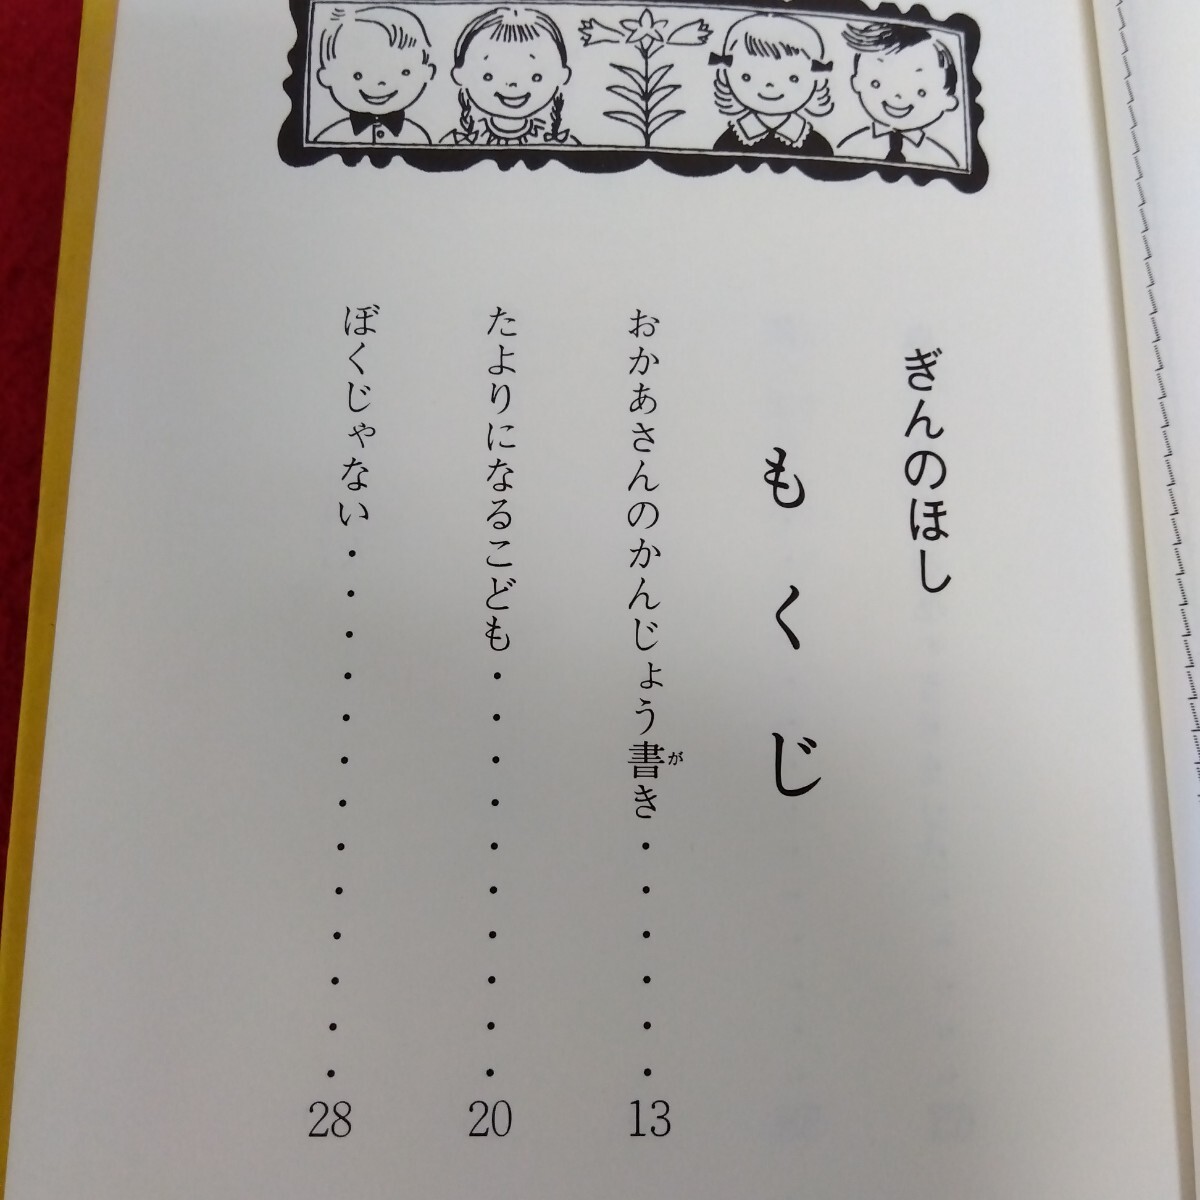 ぎんのほし
もくじ
おかあさんのかんじょう書き・・・・・・13
たよりになるこども・・・・・・・・・・20
ぼくじゃない・・・・・・・・・・・・・28